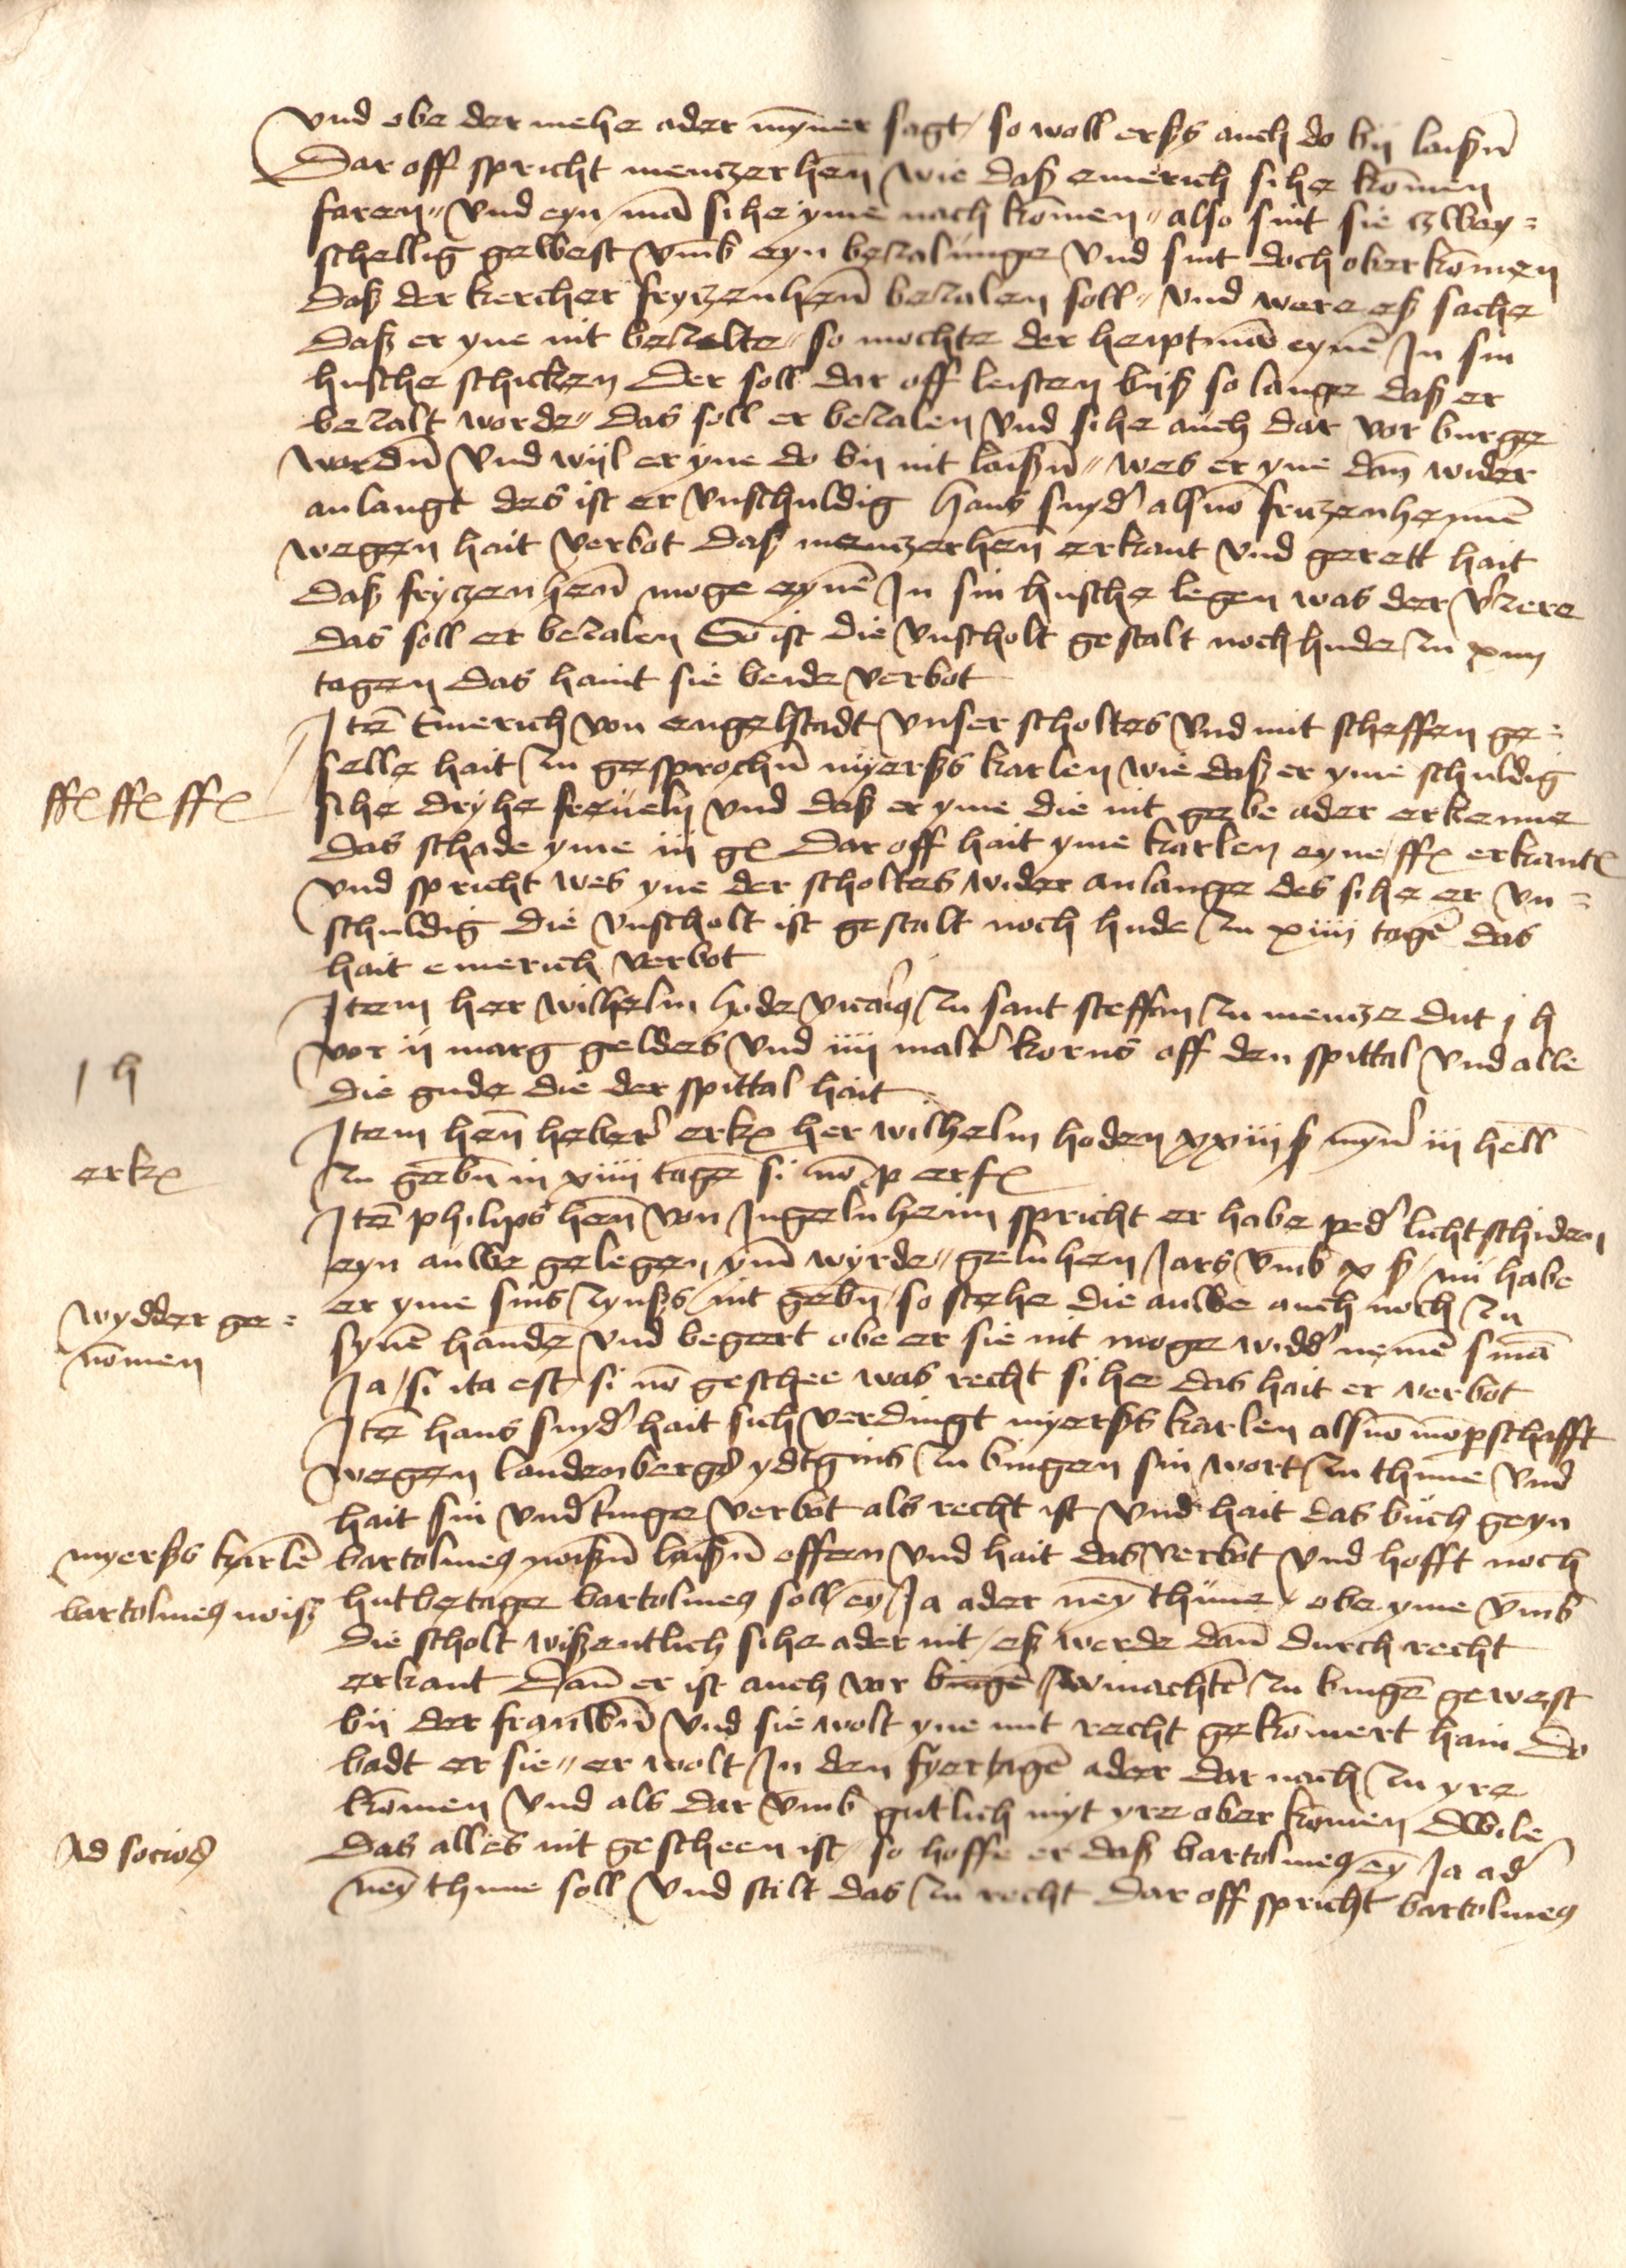 vnd obe der mehe ader myner sagt / so woll erßs auch do bij laißn̄
Dar off spricht menczerhen̄ wie daß emerich sihe kōmen
faren // vnd eyn mā sihe yme nach kōmen // also sint sie czwey=
schellig gewest vmb eyn beczalunge vnd sint doch oberkomen
daß der kercher fryczenhen̄ beczalen soll // vnd were eß sache
daß er yne nit beczelte // so mochte der heuptmā eynē In sin
husche schicken der soll dar off leisten bijß so lange daß er
beczalt worde // das soll er beczalen vnd sihe auch dar vor burge
wordn̄ vnd wijl er yne do bij nit laißn̄ // wes er yne dan̄ wider
anlangt des ist er vnschuldig hans snyd' als nō friczenhenne
wegen hait verbot daß menczerhen̄ erkant vnd gerett hait
daß fryczenhen̄ moge eynē In sin husche legen was der v'czere
das soll er beczalen So ist die vnscholt gestalt noch hude czu xiiij
tagen das haint sie beide verbot
Itē Emerich von engelstadt vnser scholtes vnd mit scheffen ge=
selle hait czu gesprochn̄ myerßs karlen wie daß er yme schuldig
ffl ffl ffl
sihe dryhe freueln vnd daß er yme die nit gebe ader erkenne
das schade yme iij gl Dar off hait yme karlen eyne ffl erkant
vnd spricht wes yne der scholtes wider anlange des sihe er vn=
schuldig die vnscholt ist gestalt noch hude czu xiiij tagē das
hait emerich verbot
Item her wilhelm hode vicariꝰ czu sant steffan czu mencze dut j h
1 h
vor ij marg geldes vnd iiij malt' korns off den spittal vnd alle
die gude die der spittal hait
Item hen̄ heber' erkl her wilhelm hoden xxiiij ß myn' iij hell
erkl
czu gebn̄ in xiiij tage si nō p erfl
Itē philips hen̄ von Ingelnheim spricht er habe ped' lichtschiden
eyn auwe gelegen ym̄ wyrde // geluhen Jars vmb x ß / nu habe
wydder ge=
nōmen
er yme sins czynßs nit gebn̄ / so stehe die auwe auch noch czu
synē hande vnd begert obe er sie nit moge widd' nemē snā
Ja / si ita est / si nō geschee was recht sihe das hait er verbot
Itē hans snyd' hait sich verdingt myerßs karlen als nō mōpschafft
wegen landenberg' ydtgins czu bingen sin wort czu thune vnd
hait sin vnd'tinge verbot als recht ist vnd hait das buch geyn
myerßs karlē
bartolmeꝰ noiß
bartolmeꝰ noißn̄ laißn̄ offen vnd hait das verbot vnd hofft noch
hutbetage bartolmeꝰ soll ey Ja ader ney thune / obe yme vmb
die scholt wißentlich sihe ader nit / eß werde dan̄ durch recht
erkant Dan̄ er ist auch vor bingē winachtē czu bingē gewest
bij der frauwn̄ vnd sie wolt yne mit recht gekōmert hain Do
badt er sie // er wolt In den fyertagē ader dar nach czu yre
kōmen vnd als dar vmb gutlich myt yre oberkomen Dwile
Ad socios
das alles nit gescheen ist / so hoffe er daß bartolmeꝰ ey Ja ad'
ney thune soll vnd stilt das czu recht Dar off spricht bartolmeꝰ